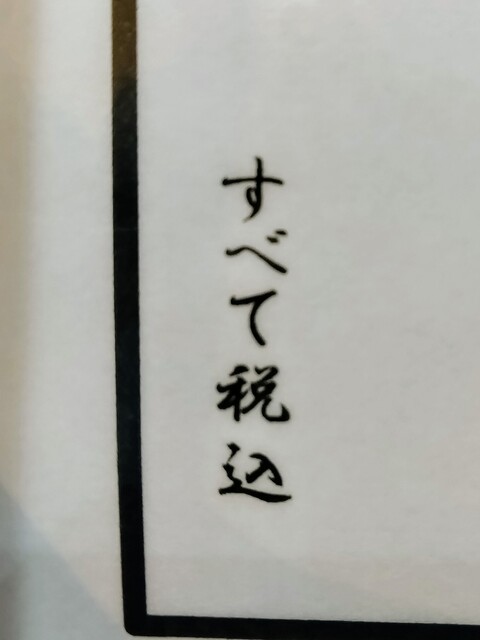 すべて税込